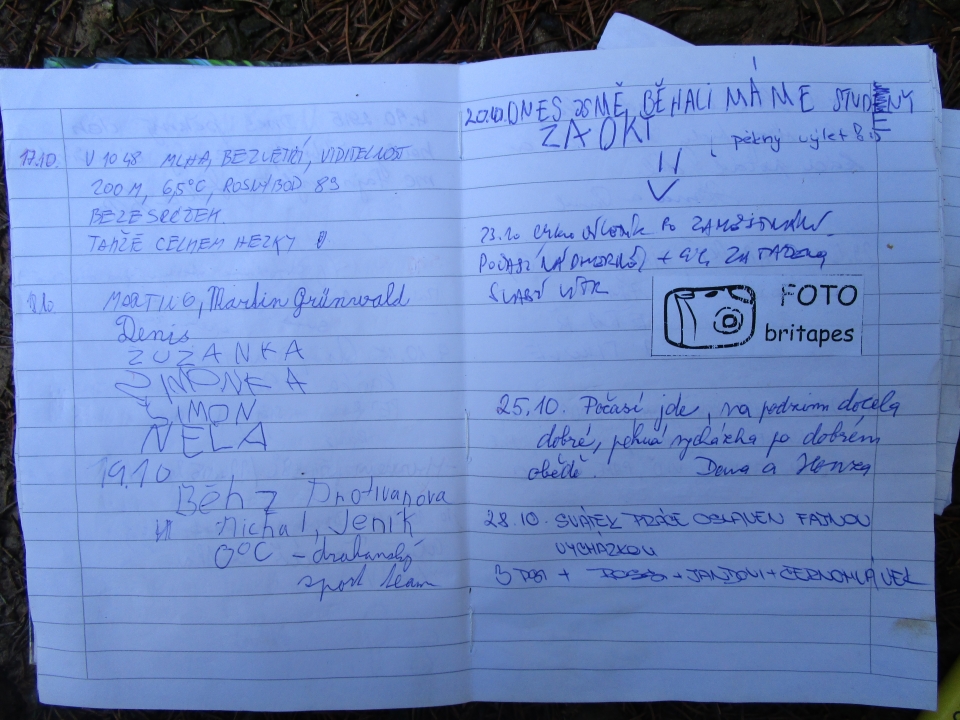 17.10. V 1048 MLHA, BEZVĚTŘÍ, VIDITELNOST
200 M, 6,5°C, ROSNÝ BOD 89
BEZE SRÁŽEK.
TAKŽE CELKEM HEZKY
MARTIN G, Martin Grünwald
Denis
ZUZANKA
SIMONKA
ŠIMON
NELA
19.10
Běh z Protivanova
Michal, Jeník
0°C - drahanský
sport team
20.10. DNES JSME BĚHALI MÁME STUDENÝ
ZADKY
pěkný výlet
23.10
POČASÍ NÁDHERNÉ, + 9°C ZATAŽENO
SLABÝ VÍTR
FOTO
britapes
25.10. Počasí jde, na podzim docela
dobré, pěkná vycházka po dobrém
obědě. Dana a Honza
28.10. SVÁTEK PRÁCE OSLAVEN FAJNOU
VYCHÁZKOU
3 PSI + + JANDOVI + ČERNOHLÁVEK